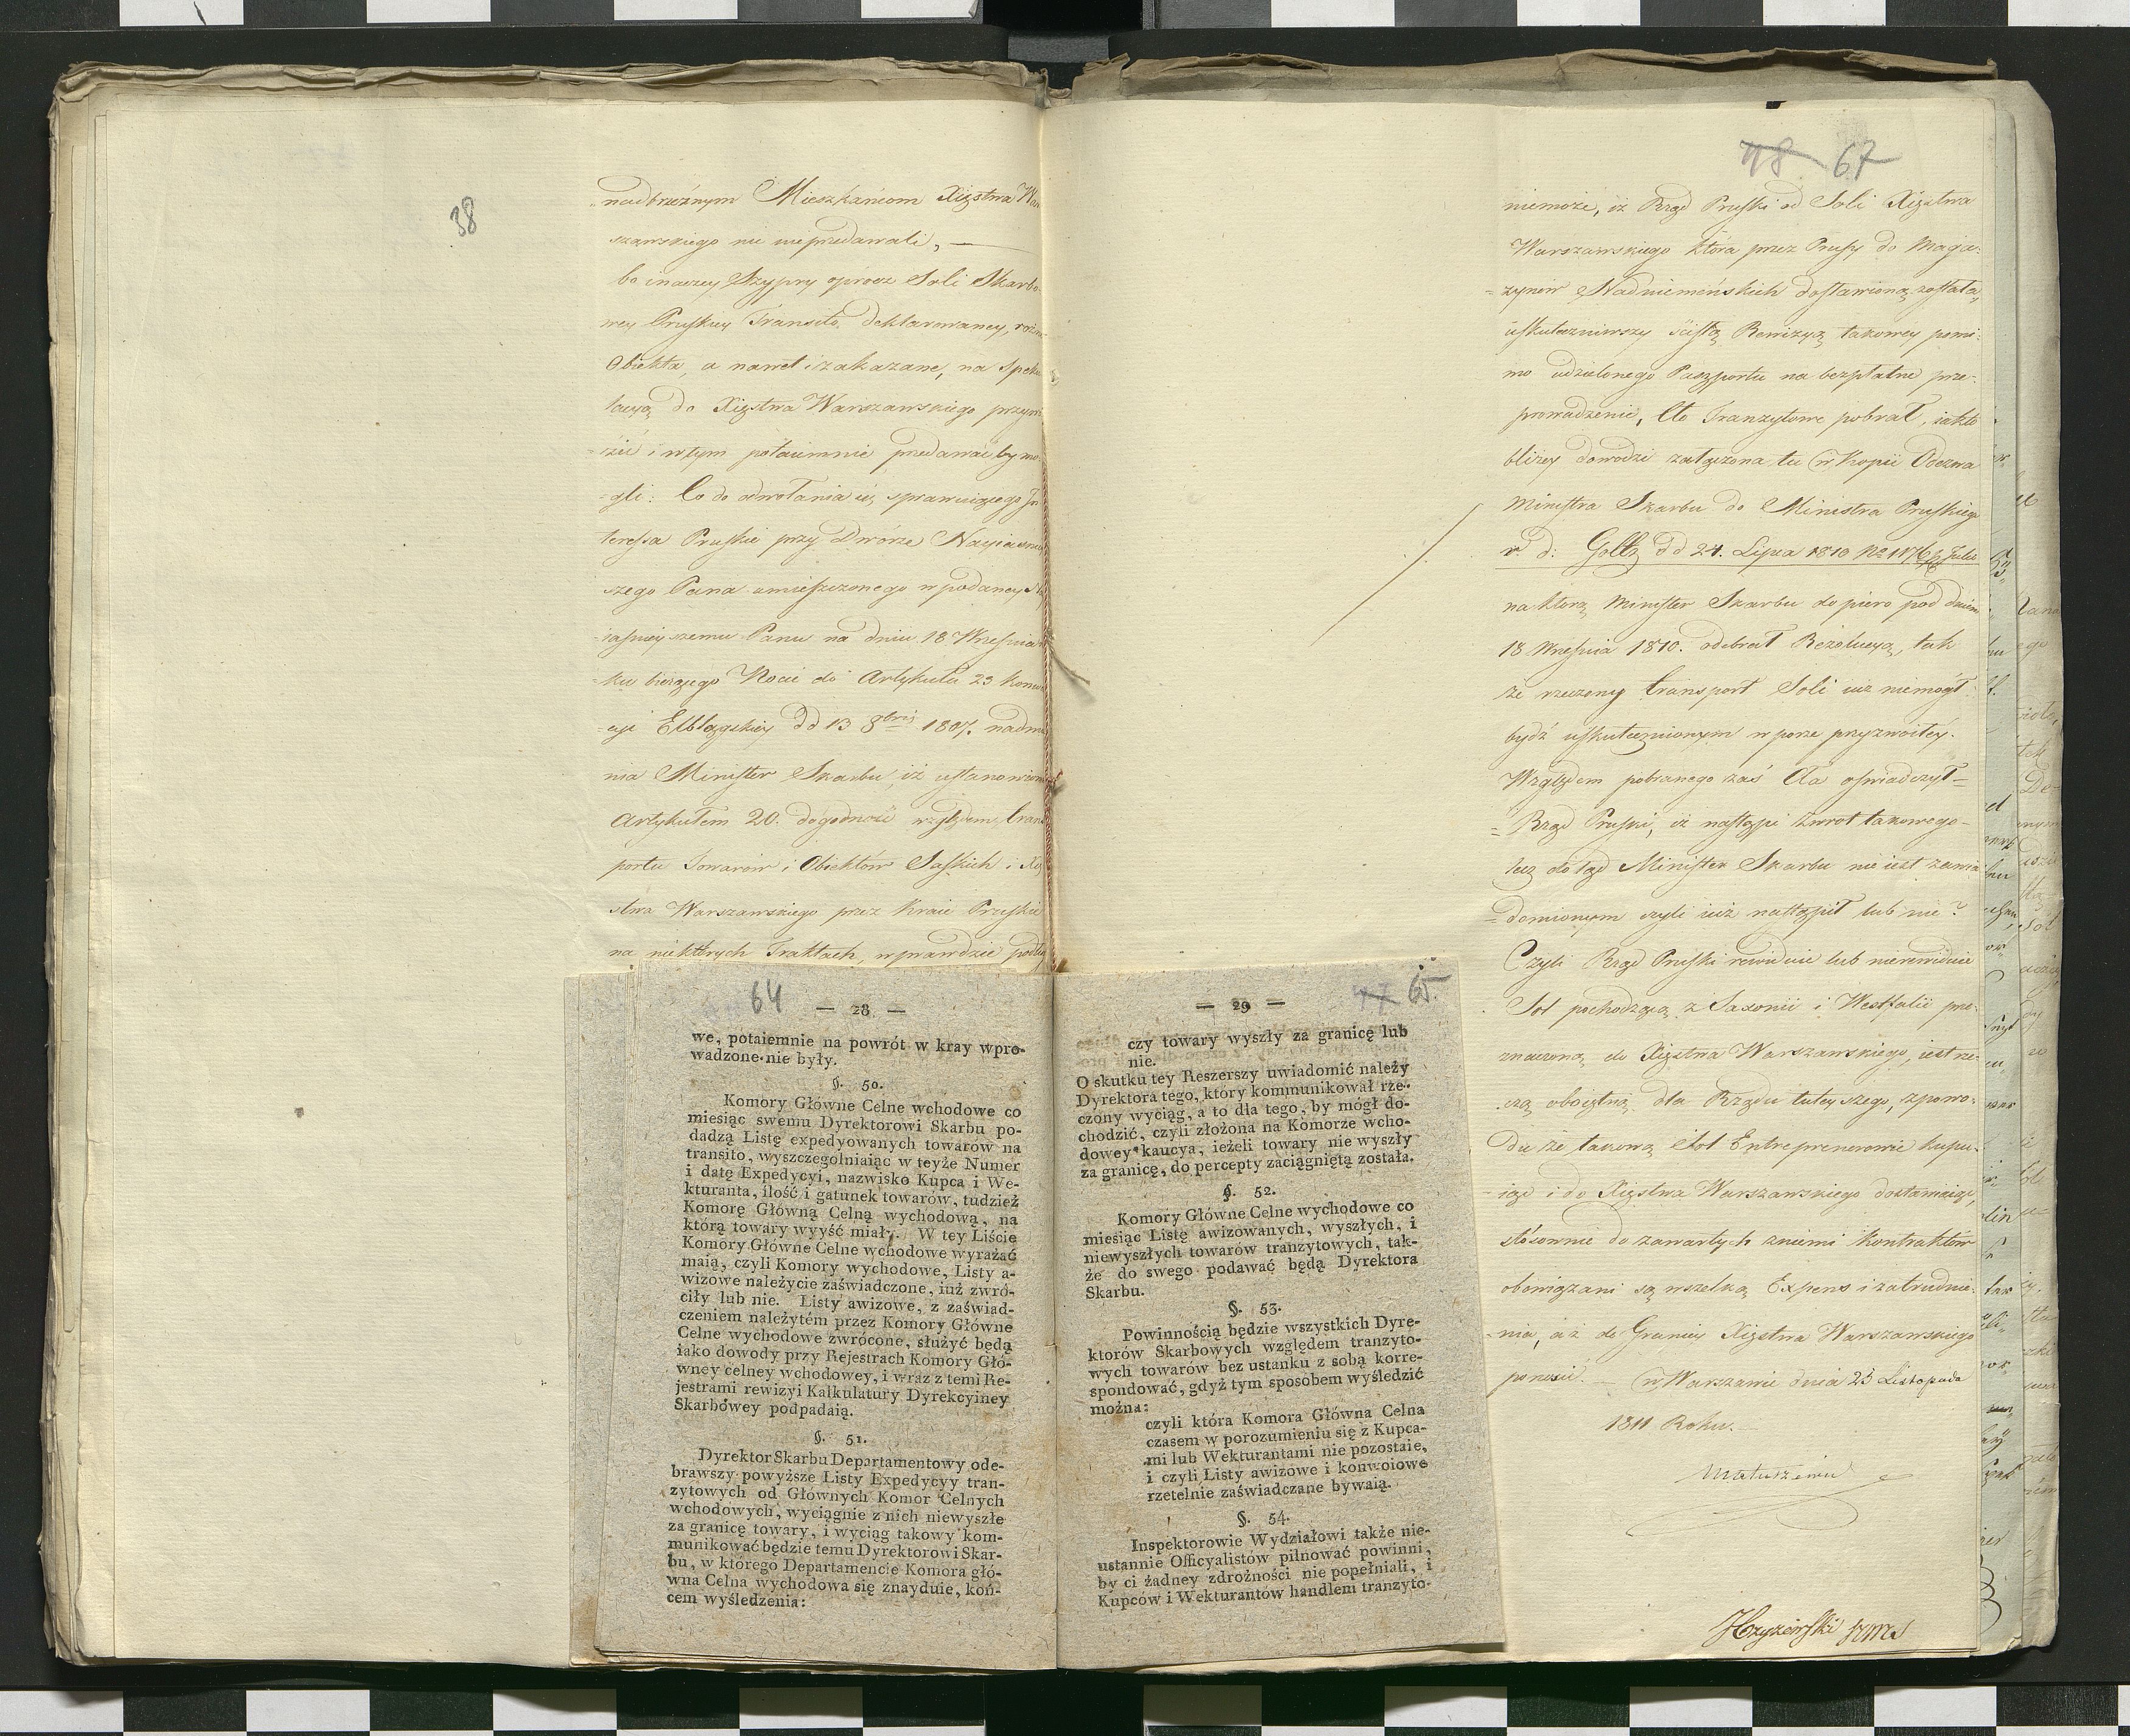 38
nadbrzeżnym Mieszkańcom Xięstwa War
szawskiego nie nieprzedawali, —
bo inaczey Szypry oprocz Soli Skarbo-
wey Pruskiey Transito deklarowaney, rożne
Obiekta, a nawet i zakazane, na Speku
lacyą do Xięstwa Warszawskiego przywo
-zić i w tym potaiemnie przedawać by mo-
-gli: Co do odwołania się sprawuiącego In
teressa Pruskie przy Dworze Nayiasniey
szego Pana umieszczonego w podaney Nay
-iasnieyszemu Panu na dniu 18 Wrzesnia
-ku bieżącego Nocie do Artykułu 23 Konwen
-cyi Elblągskiey dd 13 8bris 1807. nadmie
nia Minister Skarbu, iż ustanowione
Artykułem 20. dogodność względem trans
portu Towarow i Obiektów Saskich i Xię
stwa Warszawskiego przez Kraie Pruskie
na niektorych Traktach, wprawdzie podług
64
— 28 —
we, potaiemnie na powrót w kray wpro-
wadzone nie były.
§. 50.
Komory Główne Celne wchodowe co
miesiąc swemu Dyrektorowi Skarbu po-
dadzą Listę expedyowanych towarów na
transito, wyszczególniaiąc w teyże Numer
i datę Expedycyi, nazwisko Kupca i We-
kturanta, ilość i gatunek towarów, tudzież
Komorę Główną Celną wychodową, na
którą towary wyyść miały. W tey Liście
Komory Główne Celne wchodowe wyrażać
maią, czyli Komory wychodowe, Listy a-
wizowe należycie zaświadczone, iuż zwró-
ciły lub nie. Listy awizowe, z zaświad-
czeniem należytém przez Komory Główne
Celne wychodowe zwrócone, służyć będą
iako dowody przy Rejestrach Komory Głó-
wney celney wchodowey, i wraz z temi Re-
jestrami rewizyi Kalkulatury Dyrekcyiney
Skarbowey podpadaią.
§. 51.
Dyrektor Skarbu Departamentowy ode-
brawszy powyższe Listy Expedycyy tran-
zytowych od Głównych Komor Celnych
wchodowych, wyciągnie z nich niewyszłe
za granicę towary, i wyciąg takowy kom-
munikować będzie temu Dyrektorowi Skar-
bu, w którego Departamencie Komora głó-
wna Celna wychodowa się znayduie, koń-
cem wyśledzenia:
47 65.
— 29 —
czy towary wyszły za granicę lub
nie.
O skutku tey Reszerszy uwiadomić należy
Dyrektora tego, który kommunikował rze-
czony wyciąg, a to dla tego, by mógł do-
chodzić, czyli złożona na Komorze wcho-
dowey kaucya, ieżeli towary nie wyszły
za granicę, do percepty zaciągniętą została.
§. 52.
Komory Główne Celne wychodowe co
miesiąc Listę awizowanych, wyszłych, i
niewyszłych towarów tranzytowych, tak-
że do swego podawać będą Dyrektora
Skarbu.
§. 53.
Powinnością będzie wszystkich Dyre-
ktorów Skarbowych względem tranzyto-
wych towarów bez ustanku z sobą korre-
spondować, gdyż tym sposobem wyśledzić
można:
czyli która Komora Główna Celna
czasem w porozumieniu się z Kupca-
mi lub Wekturantami nie pozostaie,
i czyli Listy awizowe i konwoiowe
rzetelnie zaświadczane bywaią.
§. 54.
Inspektorowie Wydziałowi także nie-
ustannie Officyalistów pilnować powinni,
by ci żadney zdrożności nie popełniali, i
Kupców i Wekturantów handlem tranzyto-
48 67
niemoże, iż Rząd Pruski od Soli Xięstwa
Warszawskiego która przez Prusy do Maga-
-zynow Nadniemeńskich dostawioną została,
uskuteczniwszy ścisłą Rewizyą takowey pomi-
mo udzielonego Paszportu na bezpłatne prze-
prowadzenie, Cło Tranzytowe pobrał, iak to
bliżey dowodzi załączona tu w Kopii Odezwa
Ministra Skarbu do Ministra Pruskiego
v. d: Goltz dd 24. Lipca 1810 No 1176
na ktorą Minister Skarbu dopiero pod dniem
18 Wrzesnia 1810. odebrał Rezolucyą, tak
że rzeczony transport Soli iuż niemógł
bydź uskutecznionym w porze przyzwoitey.
Względem pobranego zaś Cła oswiadczył
-Rząd Pruski, iż nastąpi zwrot takowego-
lecz dotąd Minister Skarbu nie iest zawia
-domionym czyli iuż nastąpił lub nie?
Czyli Rząd Pruski rewiduie lub nierewiduie
Sol pochodzącą z Saxonii i Westfalii prze-
znaczoną do Xięstwa Warszawskiego, iest rze-
czą oboiętną dla Rządu tuteyszego, z powo-
du że takową Sol Entreprenerowie kupu-
-iąc i do Xięstwa Warszawskiego dostawiaiąc,
stosownie do zawartych z niemi Kontraktow
obowiązani są wszelką Expens i zatrudnie-
-nia, aż do Granicy Xięstwa Warszawskiego
ponosić. — w Warszawie dnia 23 Listopada
1811 Roku.
Matuszewic